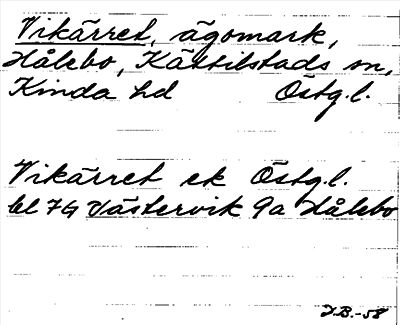 Vikärret, ägomark,
Hålebo, Kättilstads sn,
Kinda hd Östg.l.
Vikärret ek Östg.l.
bl 7G Västervik 9a Hålebo
J.B.-58